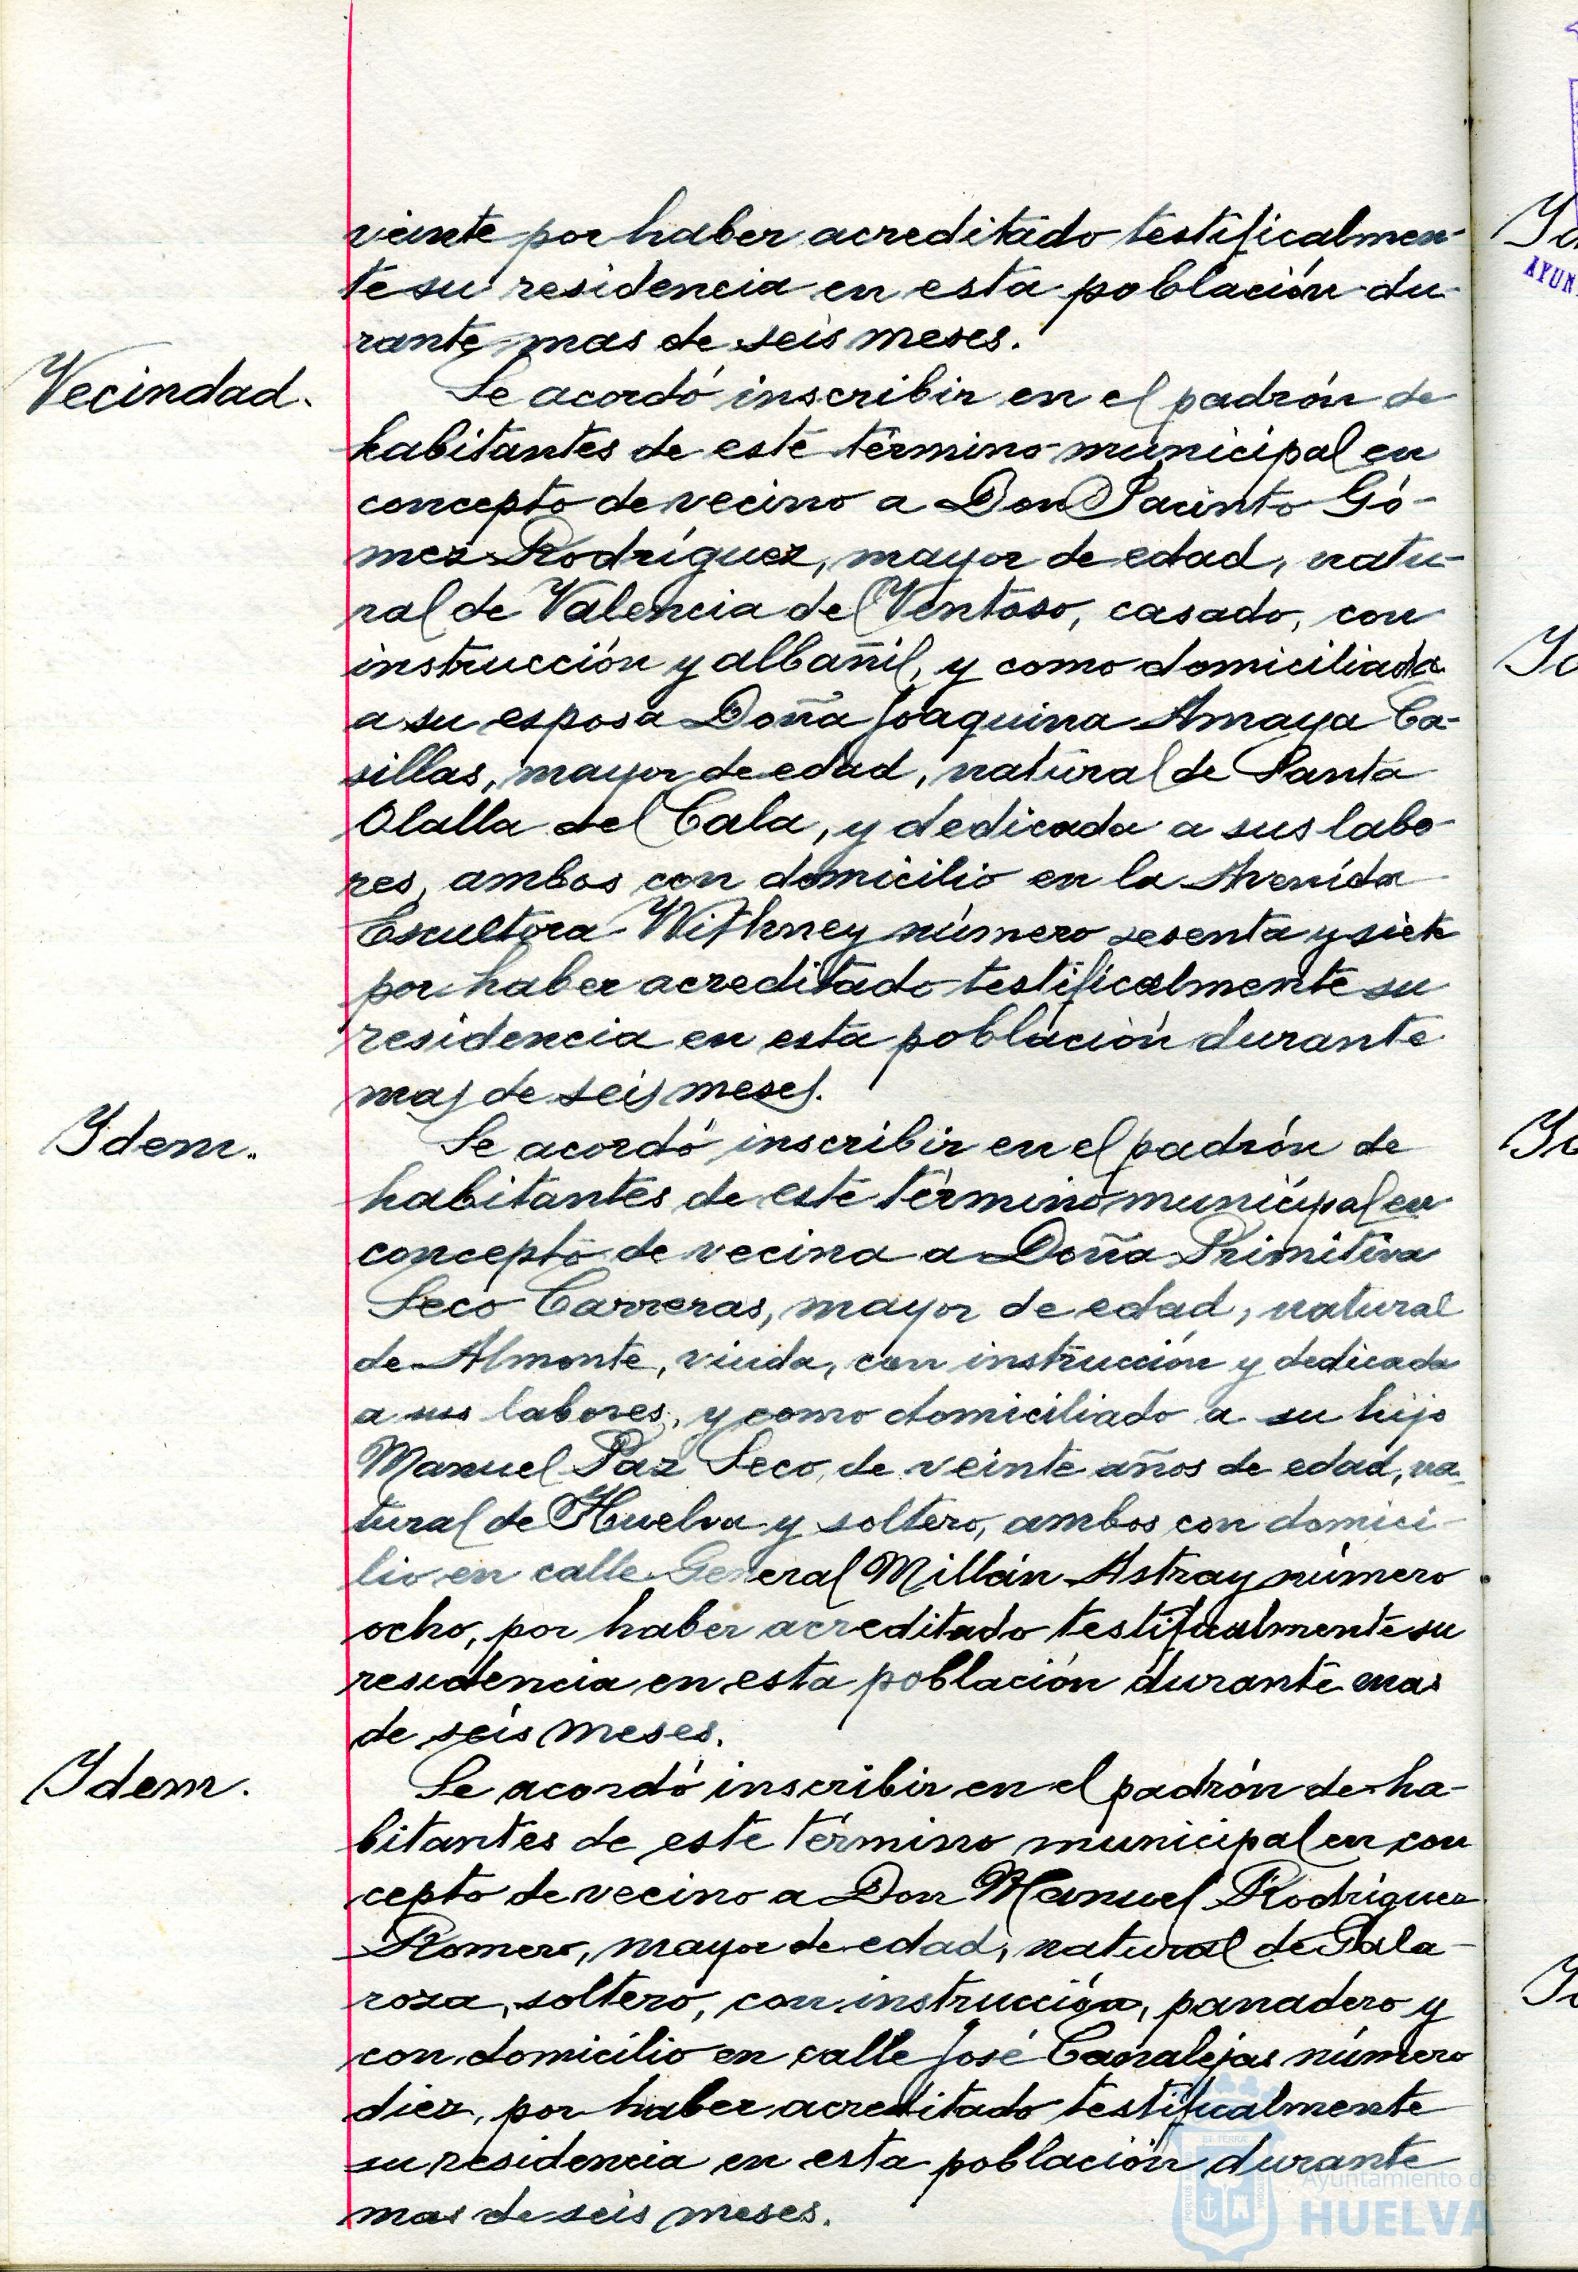 veinte por haber acreditado testificalmen-
te su residencia en esta población du-
rante mas de seis meses.
Vecindad.
Se acordó inscribir en el padrón de
habitantes de este término municipal en
concepto de vecino a Don Jacinto Gó-
mez Rodríguez, mayor de edad, natu-
ral de Valencia del Ventoso, casado, con
instrucción y albañil, y como domiciliada
a su esposa Doña Joaquina Amaya Ca-
sillas, mayor de edad, natural de Santa
Olalla del Cala, y dedicada a sus labo-
res, ambos con domicilio en la Avenida
Escultora Withney número sesenta y siete
por haber acreditado testificalmente su
residencia en esta población durante
mas de seis meses.
Idem.
Se acordó inscribir en el padrón de
habitantes de este término municipal en
concepto de vecina a Doña Primitiva
Seco Carreras, mayor de edad, natural
de Almonte, viuda, con instrucción y dedicada
a sus labores, y como domiciliado a su hijo
Manuel Paz Seco, de veinte años de edad, na-
tural de Huelva y soltero, ambos con domici-
lio en calle General Millán Astray número
ocho, por haber acreditado testificalmente su
residencia en esta población durante mas
de seis meses.
Idem.
Se acordó inscribir en el padrón de ha-
bitantes de este término municipal en con
cepto de vecino a Don Manuel Rodríguez
Romero, mayor de edad, natural de Gala-
roza, soltero, con instrucción, panadero y
con domicilio en calle José Canalejas número
diez, por haber acreditado testificalmente
su residencia en esta población durante
mas de seis meses.
Ayuntamiento de
HUELVA